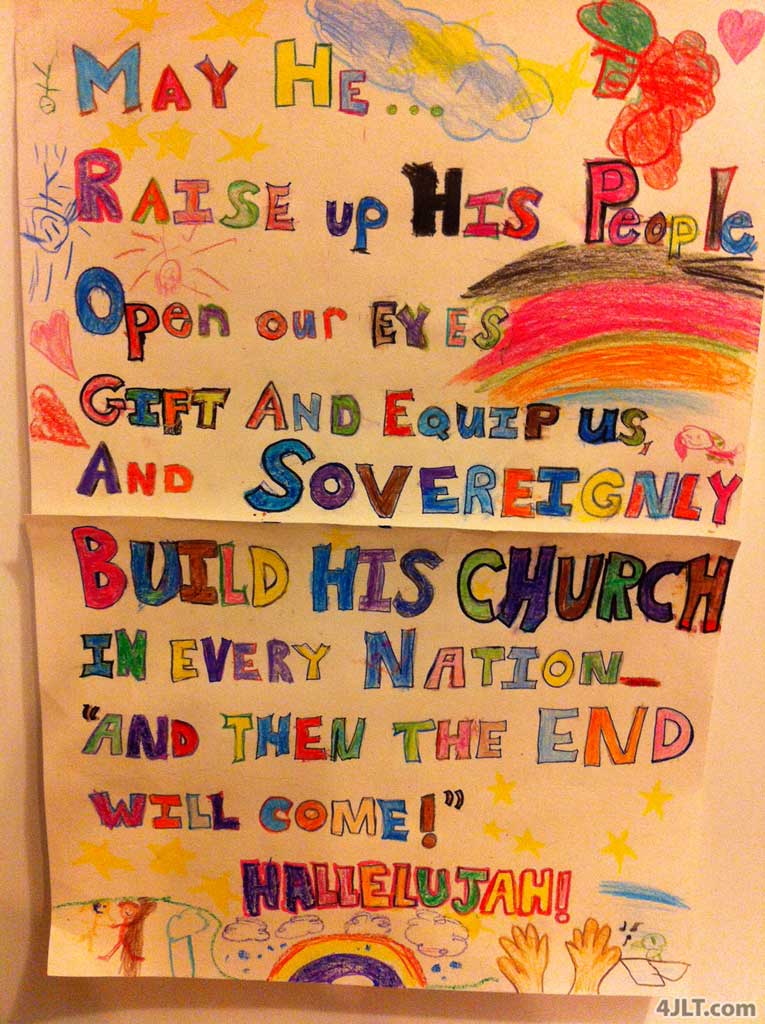 May He...
Raise up His People
Open our Eyes
Gift And Equip us,
And Sovereignly
Build His Church
in every Nation_
"And then the End
will come!"
Hallelujah!
4JLT.com